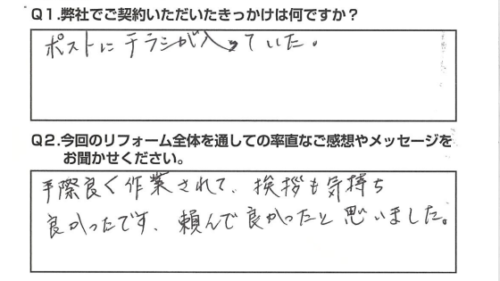 Q1.弊社でご契約いただいたきっかけは何ですか？
ポストにチラシが入っていた。
Q2.今回のリフォーム全体を通しての率直なご感想やメッセージを
お聞かせください。
手際良く作業されて、挨拶も気持ち
良かったです、頼んで良かったと思いました。